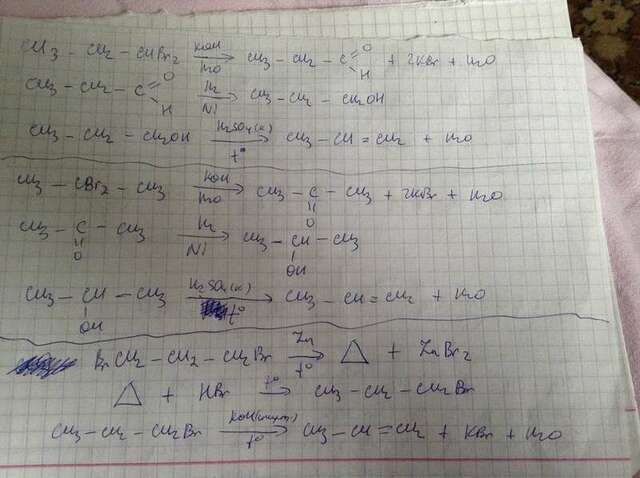 CH3 – CH2 – CHBr2 KOH/H2O → CH3 – CH2 – C(=O)H + 2KBr + H2O
CH3 – CH2 – C(=O)H H2/Ni → CH3 – CH2 – CH2OH
CH3 – CH2 – CH2OH H2SO4(к)/t° → CH3 – CH = CH2 + H2O
CH3 – CBr2 – CH3 KOH/H2O → CH3 – C(=O) – CH3 + 2KBr + H2O
CH3 – C(=O) – CH3 H2/Ni → CH3 – CH(OH) – CH3
CH3 – CH(OH) – CH3 H2SO4(к)/t° → CH3 – CH = CH2 + H2O
BrCH2 – CH2 – CH2Br Zn/t° → △ + ZnBr2
△ + HBr t° → CH3 – CH2 – CH2Br
CH3 – CH2 – CH2Br KOH(спирт.)/t° → CH3 – CH = CH2 + KBr + H2O